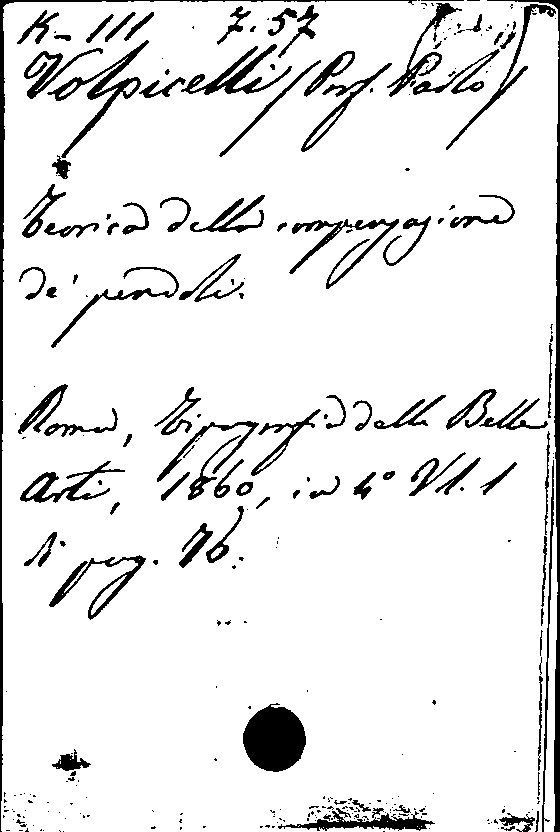 K-III 7.57
Volpicelli (Prof. Paolo)
Teorica della compensazione
de' pendoli.
Roma, Tipografia delle Belle
Arti, 1860, in 4° Vl. 1
di pag. 76.